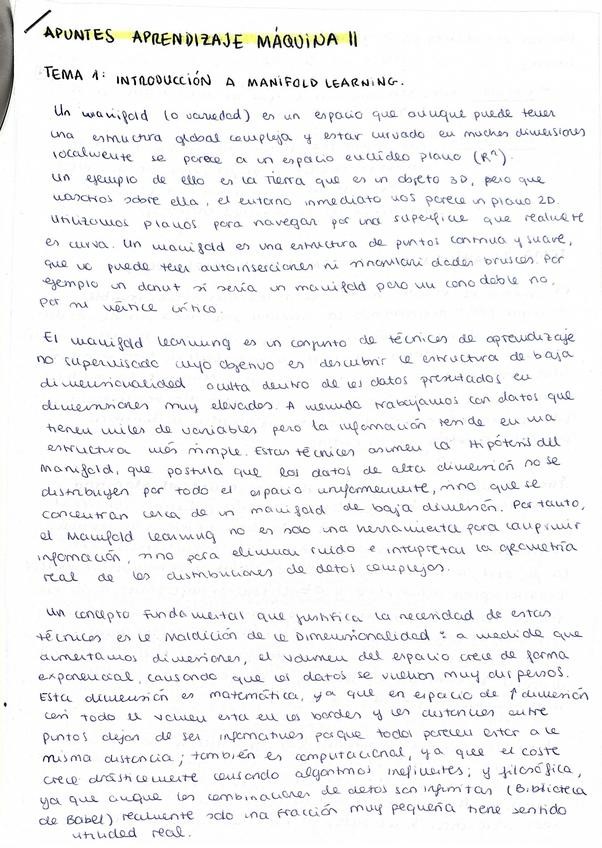 APUNTES APRENDIZAJE MÁQUINA II
TEMA 1: INTRODUCCIÓN A MANIFOLD LEARNING.
Un manifold (o variedad) es un espacio que aunque puede tener
una estructura global compleja y estar curvado en muchas dimensiones
localmente se parece a un espacio euclídeo plano (Rⁿ).
Un ejemplo de ello es la Tierra que es un objeto 3D, pero que
nosotros sobre ella, el entorno inmediato nos parece un plano 2D.
Utilizamos planos para navegar por una superficie que realmente
es curva. Un manifold es una estructura de puntos continua y suave,
que no puede tener autoinserciones ni singularidades bruscas por
ejemplo un donut si sería un manifold pero un cono doble no,
por su vértice crítico.
El manifold learning es un conjunto de técnicas de aprendizaje
no supervisado cuyo objetivo es descubrir la estructura de baja
dimensionalidad oculta dentro de los datos presentados en
dimensiones muy elevadas. A menudo trabajamos con datos que
tienen miles de variables pero la información reside en una
estructura más simple. Estas técnicas asumen la Hipótesis del
Manifold, que postula que los datos de alta dimensión no se
distribuyen por todo el espacio uniformemente, sino que se
concentran cerca de un manifold de baja dimensión. Por tanto,
el Manifold Learning no es solo una herramienta para comprimir
información, sino para eliminar ruido e interpretar la geometría
real de las distribuciones de datos complejos.
Un concepto fundamental que justifica la necesidad de estas
técnicas es la Maldición de la Dimensionalidad: a medida que
aumentamos dimensiones, el volumen del espacio crece de forma
exponencial, causando que los datos se vuelvan muy dispersos.
Esta dimensión es matemática, ya que en espacio de ↑ dimensión
casi todo el volumen esta en los bordes y las distancias entre
puntos dejan de ser informativas porque todos parecen estar a la
misma distancia; también es computacional, ya que el coste
crece drásticamente causando algoritmos ineficientes; y filosófica,
ya que aunque las combinaciones de datos son infinitas (Biblioteca
de Babel) realmente solo una fracción muy pequeña tiene sentido
utilidad real.